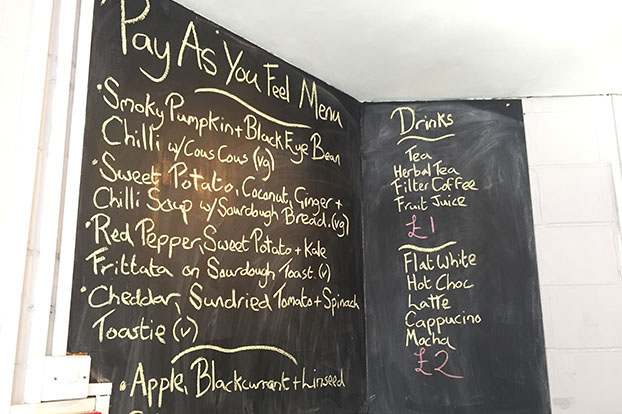 Pay As You Feel Menu
• Smoky Pumpkin + Black Eye Bean
Chilli w/ Cous Cous (vg)
• Sweet Potato, Coconut, Ginger +
Chilli Soup w/ Sourdough Bread. (vg)
• Red Pepper, Sweet Potato + Kale
Frittata on Sourdough Toast. (v)
• Cheddar, Sundried Tomato + Spinach
Toastie (v)
• Apple, Blackcurrant + Linseed
Drinks
Tea
Herbal Tea
Filter Coffee
Fruit Juice
£1
Flat White
Hot Choc
Latte
Cappucino
Mocha
£2